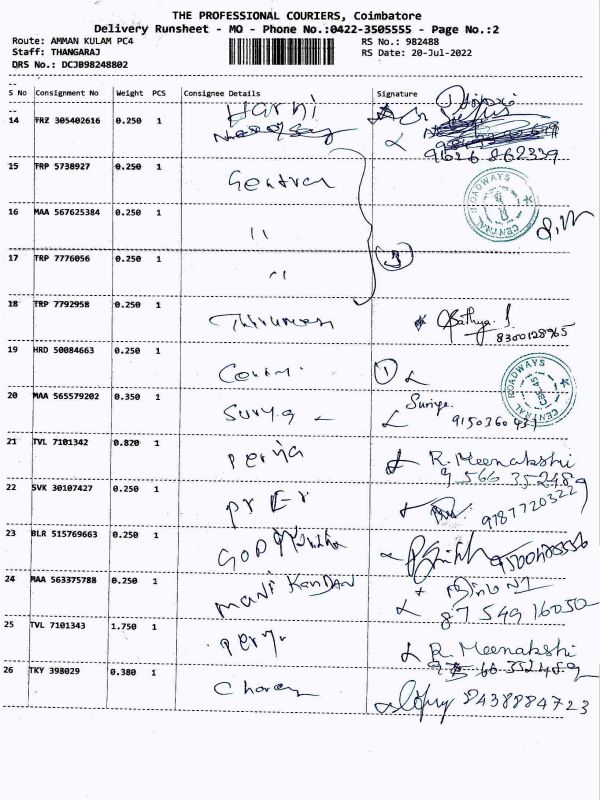 THE PROFESSIONAL COURIERS, Coimbatore
Delivery Runsheet - MO - Phone No.:0422-3505555 - Page No.:2
Route: AMMAN KULAM PC4
RS No.: 982488
Staff: THANGARAJ
RS Date: 20-Jul-2022
DRS No.: DCJB98248802
S No Consignment No Weight PCS Consignee Details Signature
14 TRZ 305402616 0.250 1 Harni
9626 862339
15 TRP 5738927 0.250 1 Central
CENTRAL ROADWAYS
16 MAA 567625384 0.250 1 "
17 TRP 7776056 0.250 1 " 3
18 TRP 7792958 0.250 1 Sathya. S.
8300128965
19 HRD 50084663 0.250 1 1
CENTRAL ROADWAYS
20 MAA 565579202 0.350 1 Surya Suriya
21 TVL 7101342 0.820 1 R. Meenakshi
9 566 352489
22 SVK 30107427 0.250 1
9787720322
23 BLR 515769663 0.250 1
24 MAA 563375788 0.250 1 Mani KanDAN
87 549 16050
25 TVL 7101343 1.750 1 R. Meenakshi
26 TKY 398029 0.380 1 8438884723